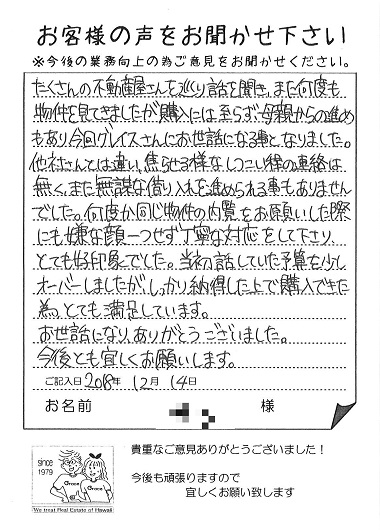 お客様の声をお聞かせ下さい
※今後の業務向上の為ご意見をお聞かせください。
たくさんの不動産屋さんを巡り話を聞き、また何度も
物件を見てきましたが購入には至らず、母親からの進め
もあり今回グレイスさんにお世話になる事となりました。
他社さんとは違い、焦らせる様なしつこい程の連絡は
無く、また無謀な借り入れを進められる事もありません
でした。何度か同じ物件の内覧をお願いした際
にも嫌な顔一つせず丁寧な対応をして下さり、
とても好印象でした。当初話していた予算を少し
オーバーしましたがしっかり納得した上で購入できた
為、とても満足しています。
お世話になり、ありがとうございました。
今後とも宜しくお願いします。
ご記入日 2018年 12月 14日
お名前 様
since
1979
Grace
Grace
We treat Real Estate of Hawaii
貴重なご意見ありがとうございました!
今後も頑張りますので
宜しくお願い致します